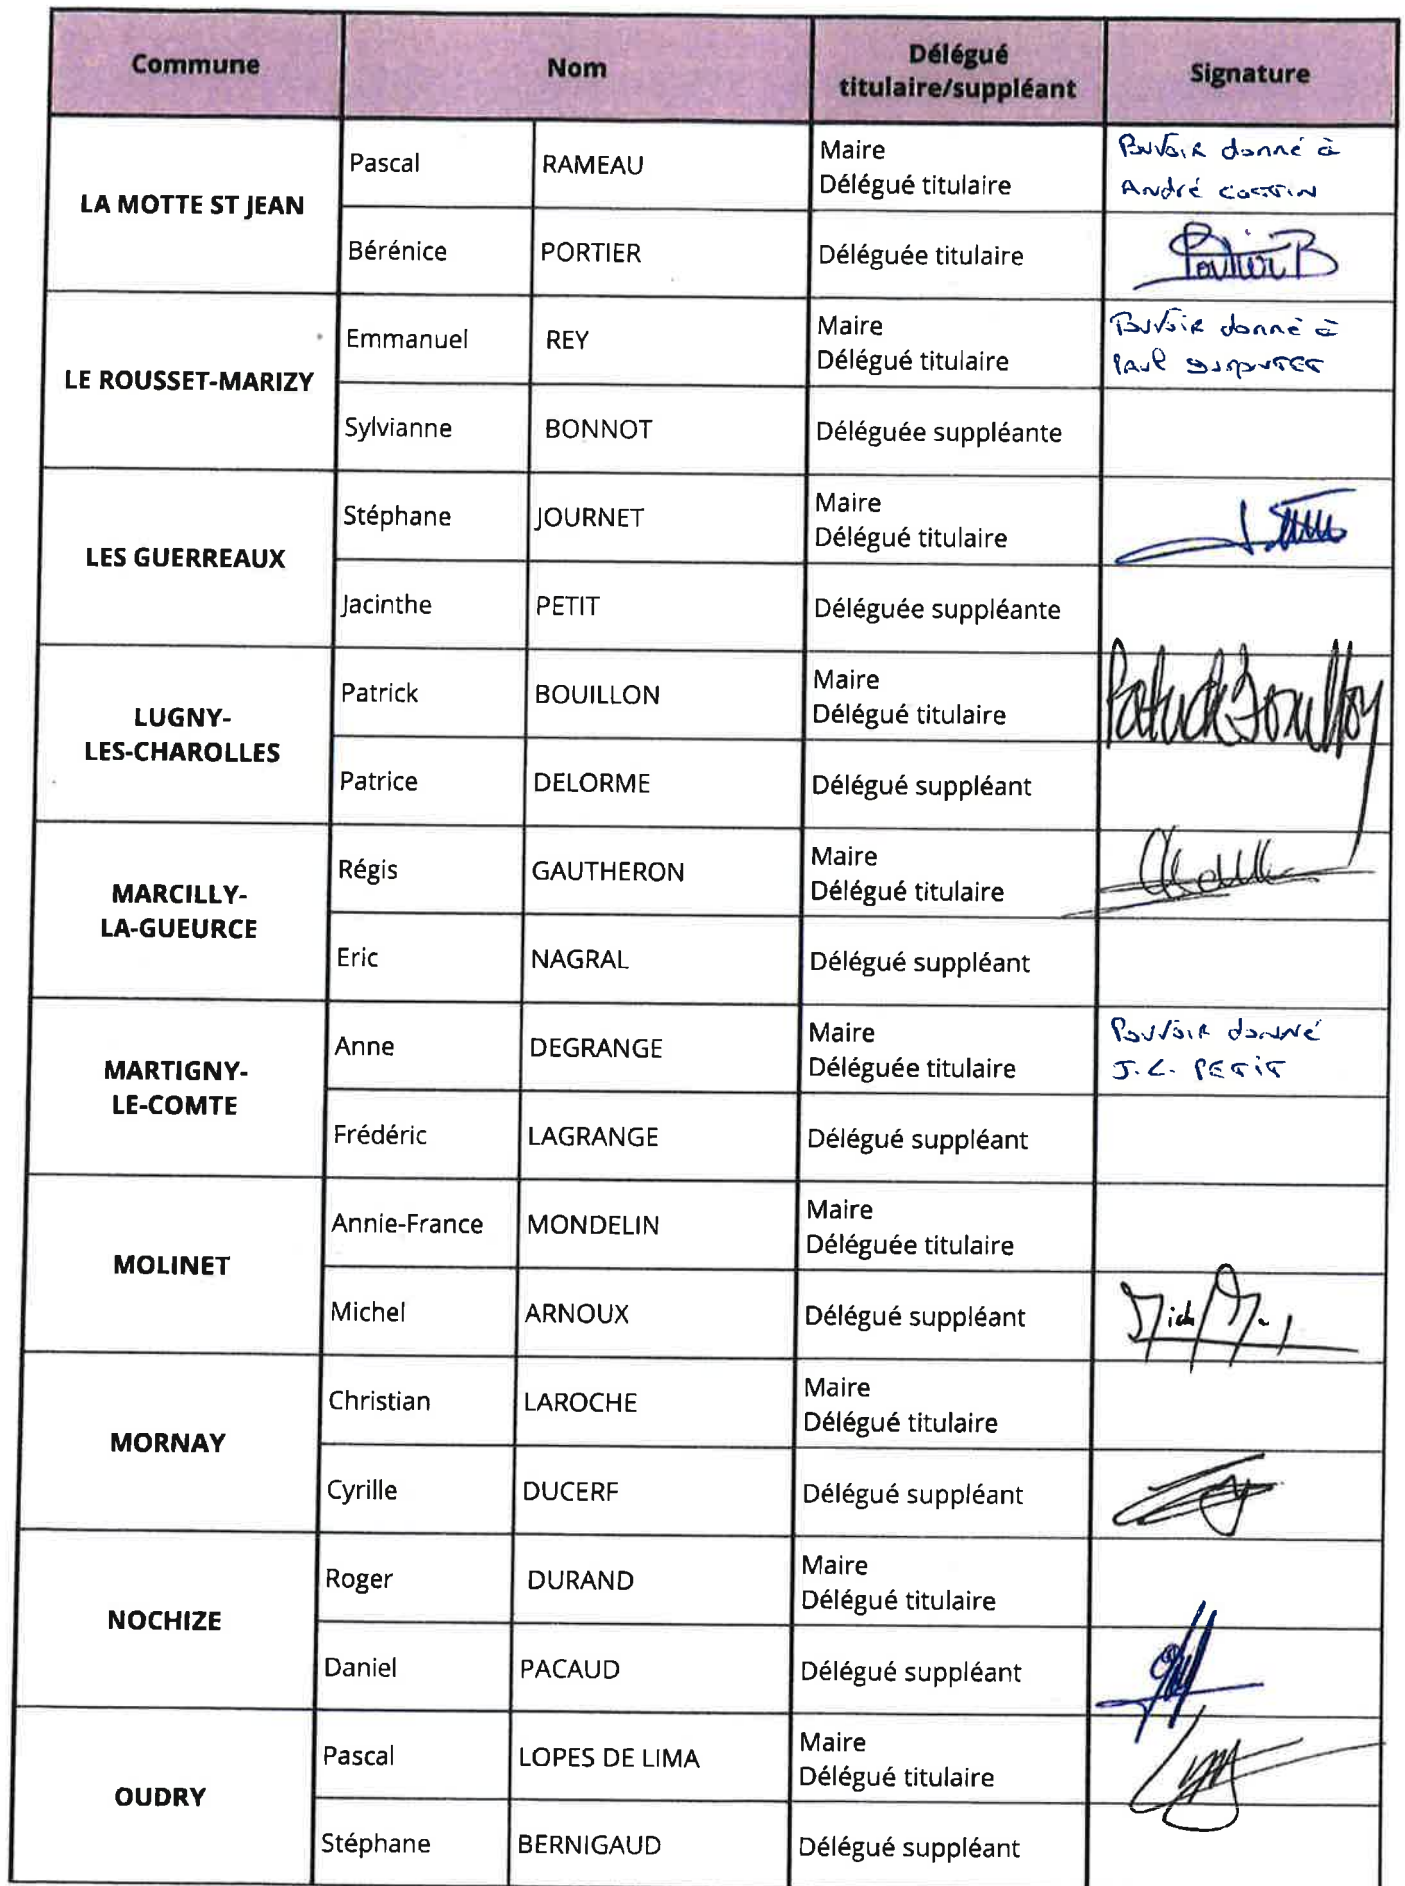 Commune Nom Délégué titulaire/suppléant Signature
LA MOTTE ST JEAN
Pascal RAMEAU Maire Délégué titulaire Pouvoir donné à André
Bérénice PORTIER Déléguée titulaire Portier B
LE ROUSSET-MARIZY
Emmanuel REY Maire Délégué titulaire Pouvoir donné à Paul
Sylvianne BONNOT Déléguée suppléante
LES GUERREAUX
Stéphane JOURNET Maire Délégué titulaire
Jacinthe PETIT Déléguée suppléante
LUGNY-
LES-CHAROLLES
Patrick BOUILLON Maire Délégué titulaire
Patrice DELORME Délégué suppléant
MARCILLY-
LA-GUEURCE
Régis GAUTHERON Maire Délégué titulaire
Eric NAGRAL Délégué suppléant
MARTIGNY-
LE-COMTE
Anne DEGRANGE Maire Déléguée titulaire Pouvoir donné J.L. PETIT
Frédéric LAGRANGE Délégué suppléant
MOLINET
Annie-France MONDELIN Maire Déléguée titulaire
Michel ARNOUX Délégué suppléant
MORNAY
Christian LAROCHE Maire Délégué titulaire
Cyrille DUCERF Délégué suppléant
NOCHIZE
Roger DURAND Maire Délégué titulaire
Daniel PACAUD Délégué suppléant
OUDRY
Pascal LOPES DE LIMA Maire Délégué titulaire
Stéphane BERNIGAUD Délégué suppléant